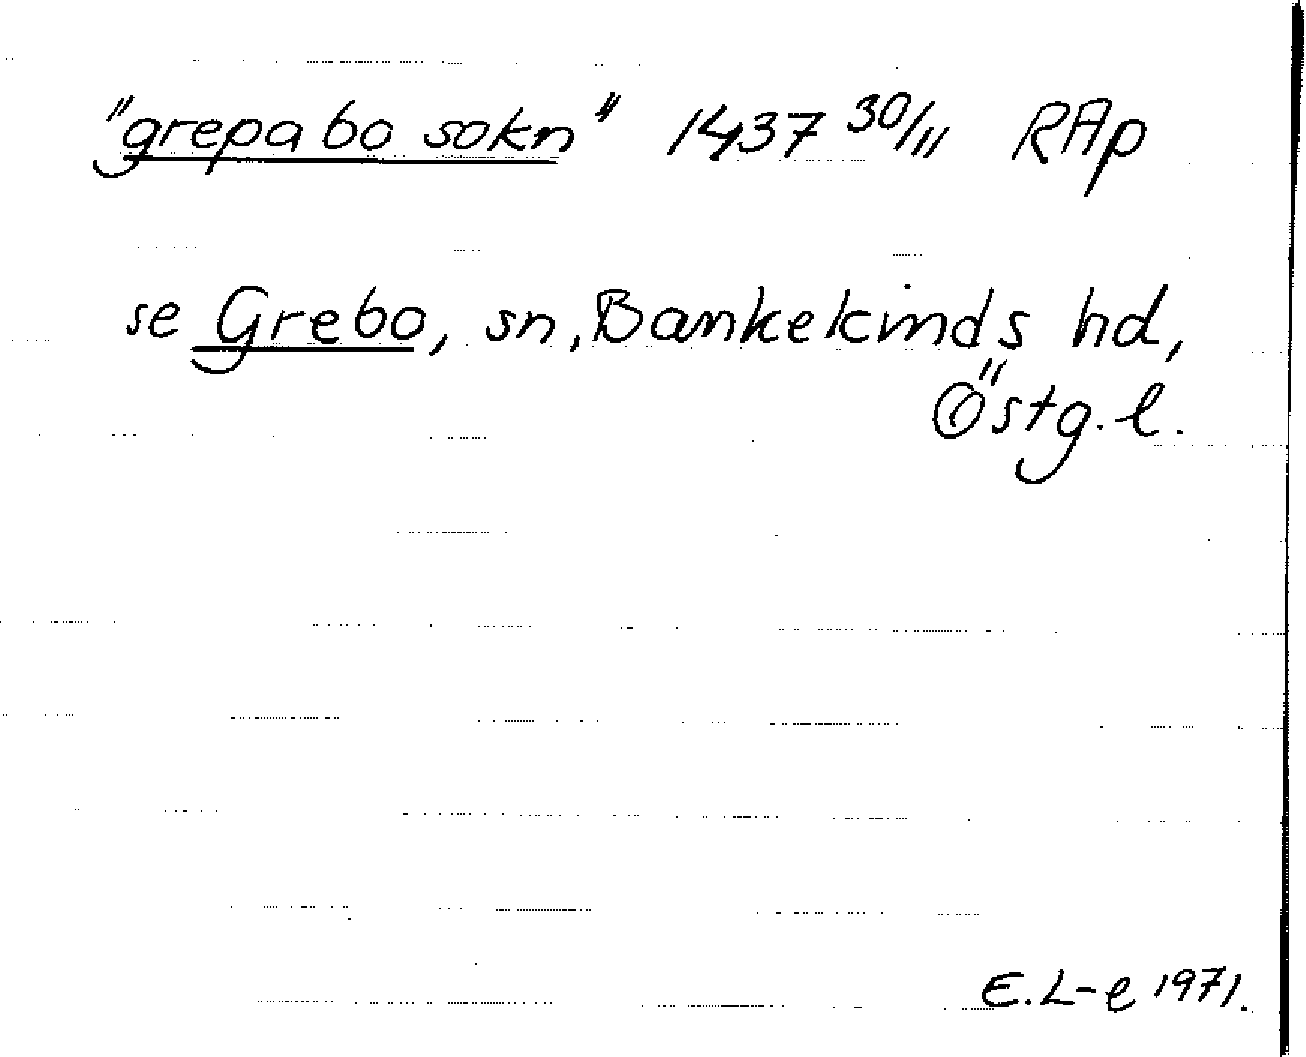 "grepa bo sokn" 1437 30/11 RAp
se Grebo, sn, Bankekinds hd,
Östg. l.
E. L-e 1971.